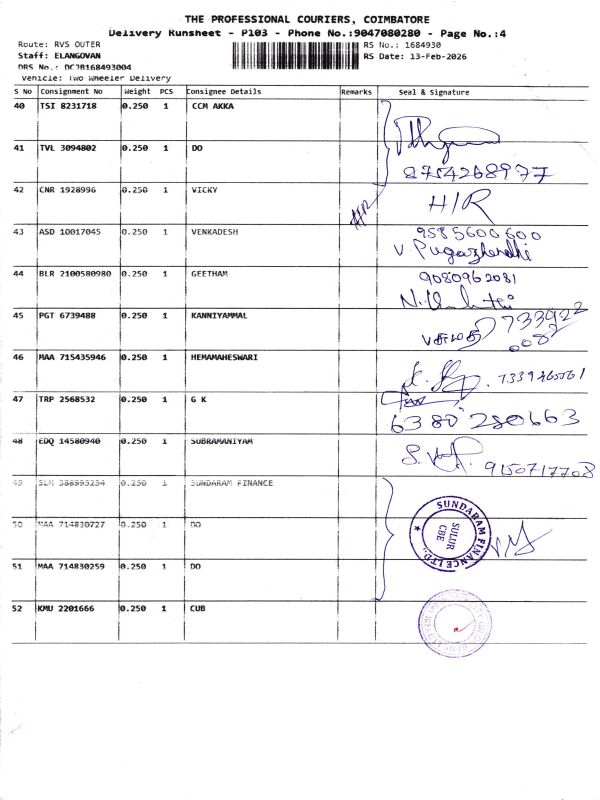 THE PROFESSIONAL COURIERS, COIMBATORE
Delivery Runsheet - P103 - Phone No.:9047080280 - Page No.:4
Route: RVS OUTER
RS No.: 1684930
Staff: ELANGOVAN
RS Date: 13-Feb-2026
DRS No.: DCJB168493004
Vehicle: Two Wheeler Delivery
S No Consignment No Weight PCS Consignee Details Remarks Seal & Signature
40 TSI 8231718 0.250 1 CCM AKKA
41 TVL 3094802 0.250 1 DO
8754268977
42 CNR 1928996 0.250 1 VICKY H/R H/R
43 ASD 10017045 0.250 1 VENKADESH 9585600600
V Pugazhendhi
44 BLR 2100580980 0.250 1 GEETHAM 9080962081
45 PGT 6739488 0.250 1 KANNIYAMMAL 733922
0082
46 MAA 715435946 0.250 1 HEMAMAHESWARI
47 TRP 2568532 0.250 1 G K
6380280663
48 EDQ 14580940 0.250 1 SUBRAMANIYAM
9150717708
49 SLM 388995254 0.250 1 SUNDARAM FINANCE
SUNDARAM FINANCE LTD.,
SULUR
CBE
50 MAA 714830727 0.250 1 DO
51 MAA 714830259 0.250 1 DO
52 KMU 2201666 0.250 1 CUB